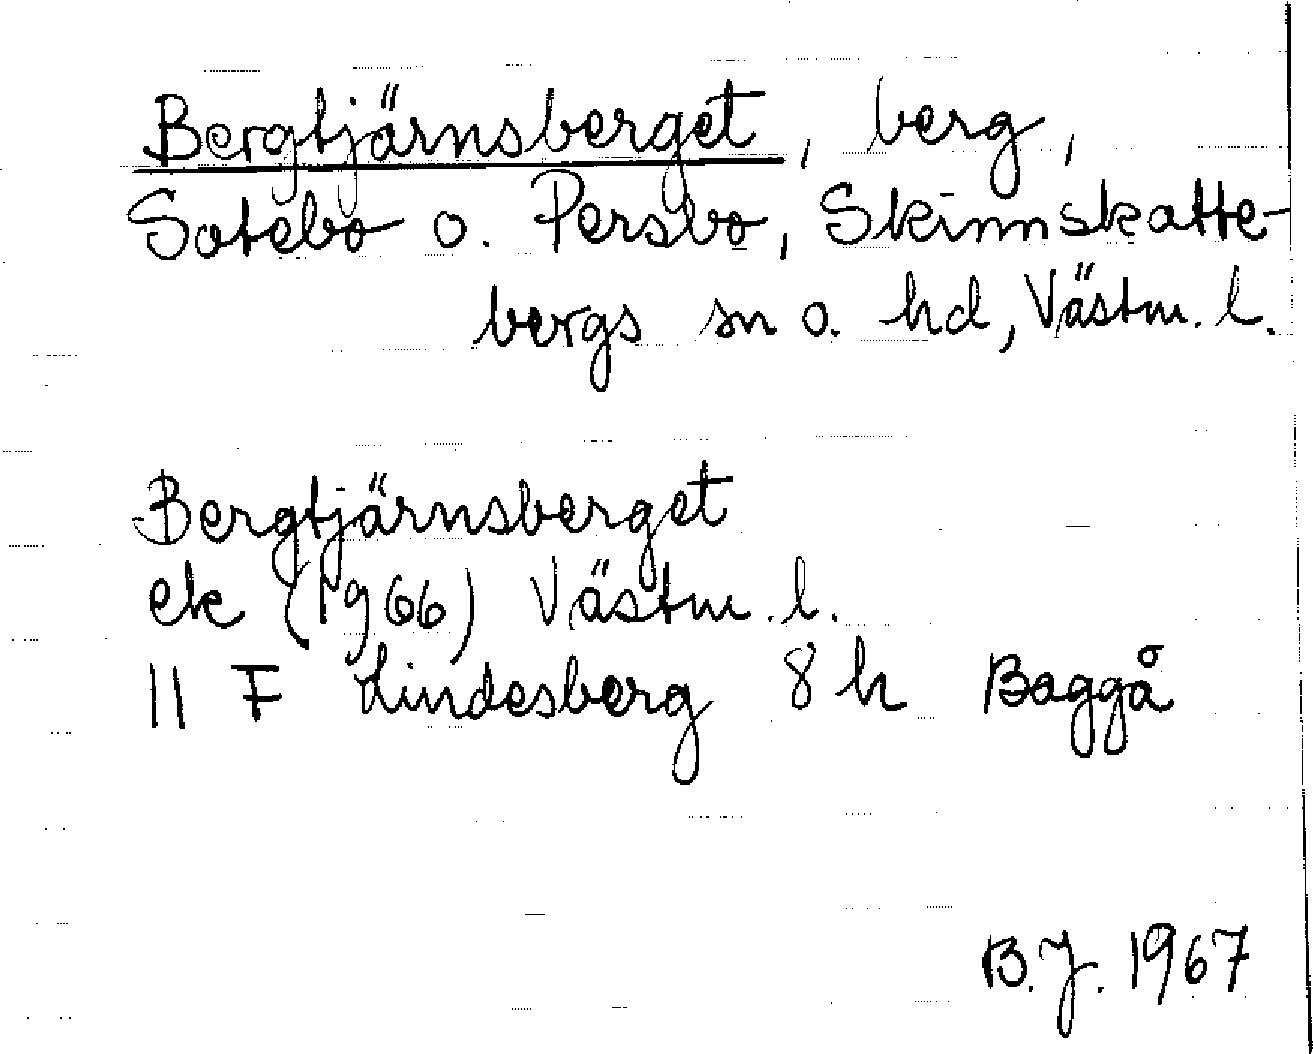 Bergtjärnsberget, berg,
Sotebo o. Persbo, Skinnskatte-
bergs sn o. hd, Västm. l.
Bergtjärnsberget
ek (1966) Västm. l.
11 F Lindesberg 8 h Baggå
B.J. 1967